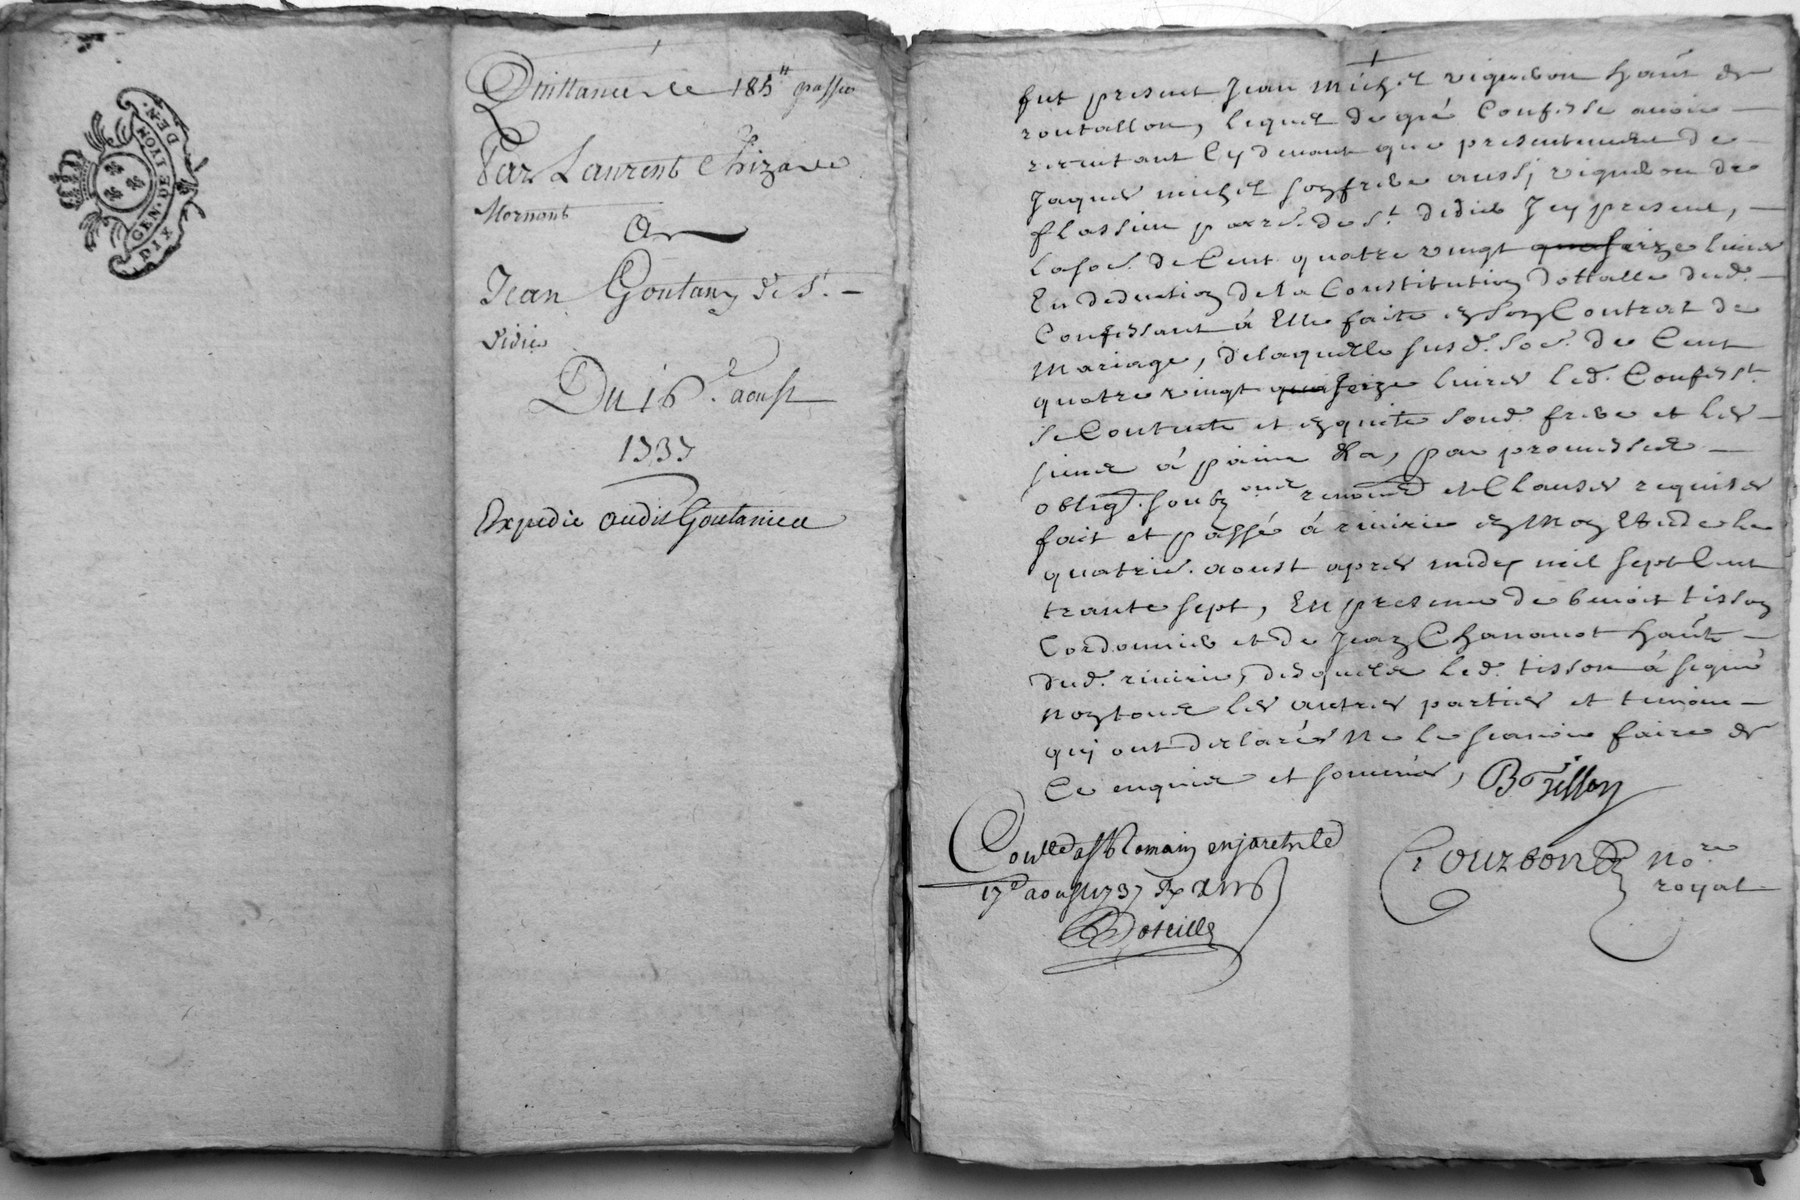 GEN. DE LYON
DIX DEN.
Quittance de 185ᵗᵗ passée
Par Laurent Chizave
Mornant
A
Jean Goutany de Sᵗ. —
Didie
Du 16ᵉ. aoust
1737
Expedie audit Goutaniea
fut present Jean Michel vigneron habt de
rontallon, lequel de gré confesse avoir —
receu tant cy devant que presentement de —
Jaques michel son frere aussy vigneron de
flassieu parrs. de St. didier Icy present, —
la soe. de Cent quatre vingt quasterze livres
En deduction de la Constitution dottalle dud. —
Confessant á Elle faite en son Contrat de
Mariage, de laquelle susd. soe. de Cent
quatre vingt quaterze livres led. Confesst.
se Contente et en quitte sond. frere et les —
siens á paine &a, par promesses —
obligõ. soubz renõns et Clauses requises
fait et passé á riverie en mon Etude le
quatrie. aoust apres midy mil sept Cent
trante sept, En presence de benoit tisson
Cordonnier et de Jean Chanavat habt —
dud. riverie, desquels led. tisson á signé
non tous les autres parties et temoins —
qui ont declarés ne le scavoir faire de
Ce enquis et sommés, B tisson
Conlle a St Romain en jarest le
17e aoust 1737 Rx
Boteille
Courbon No.re
royal